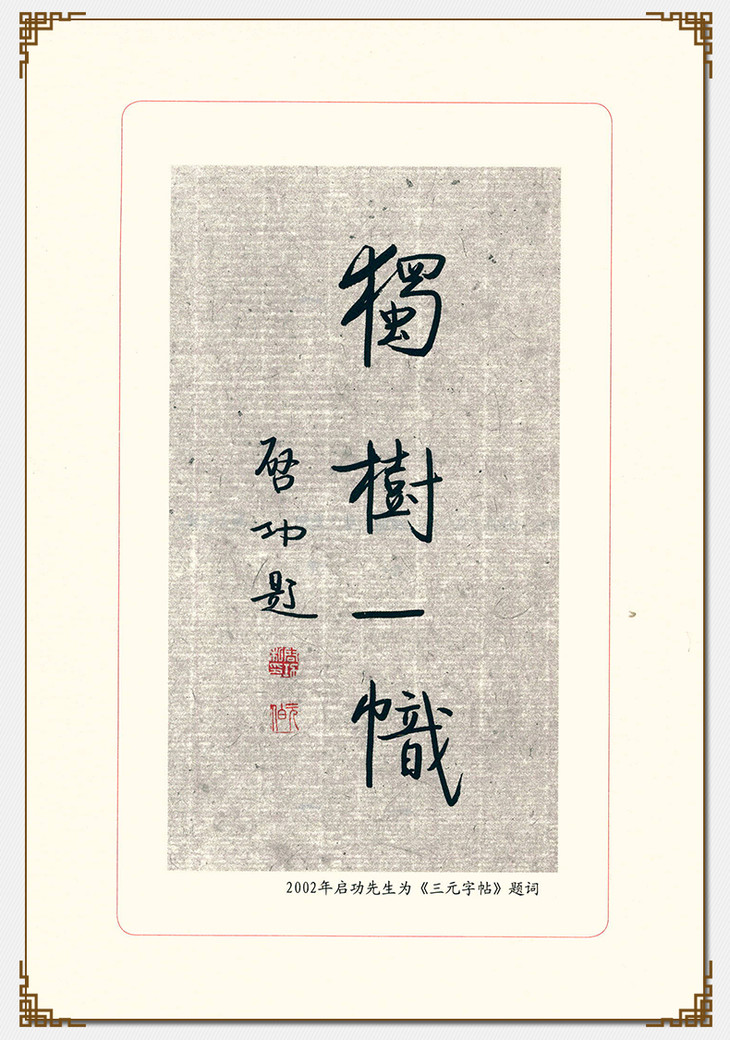 獨樹一幟
啓功题
元伯
2002年启功先生为《三元字帖》题词